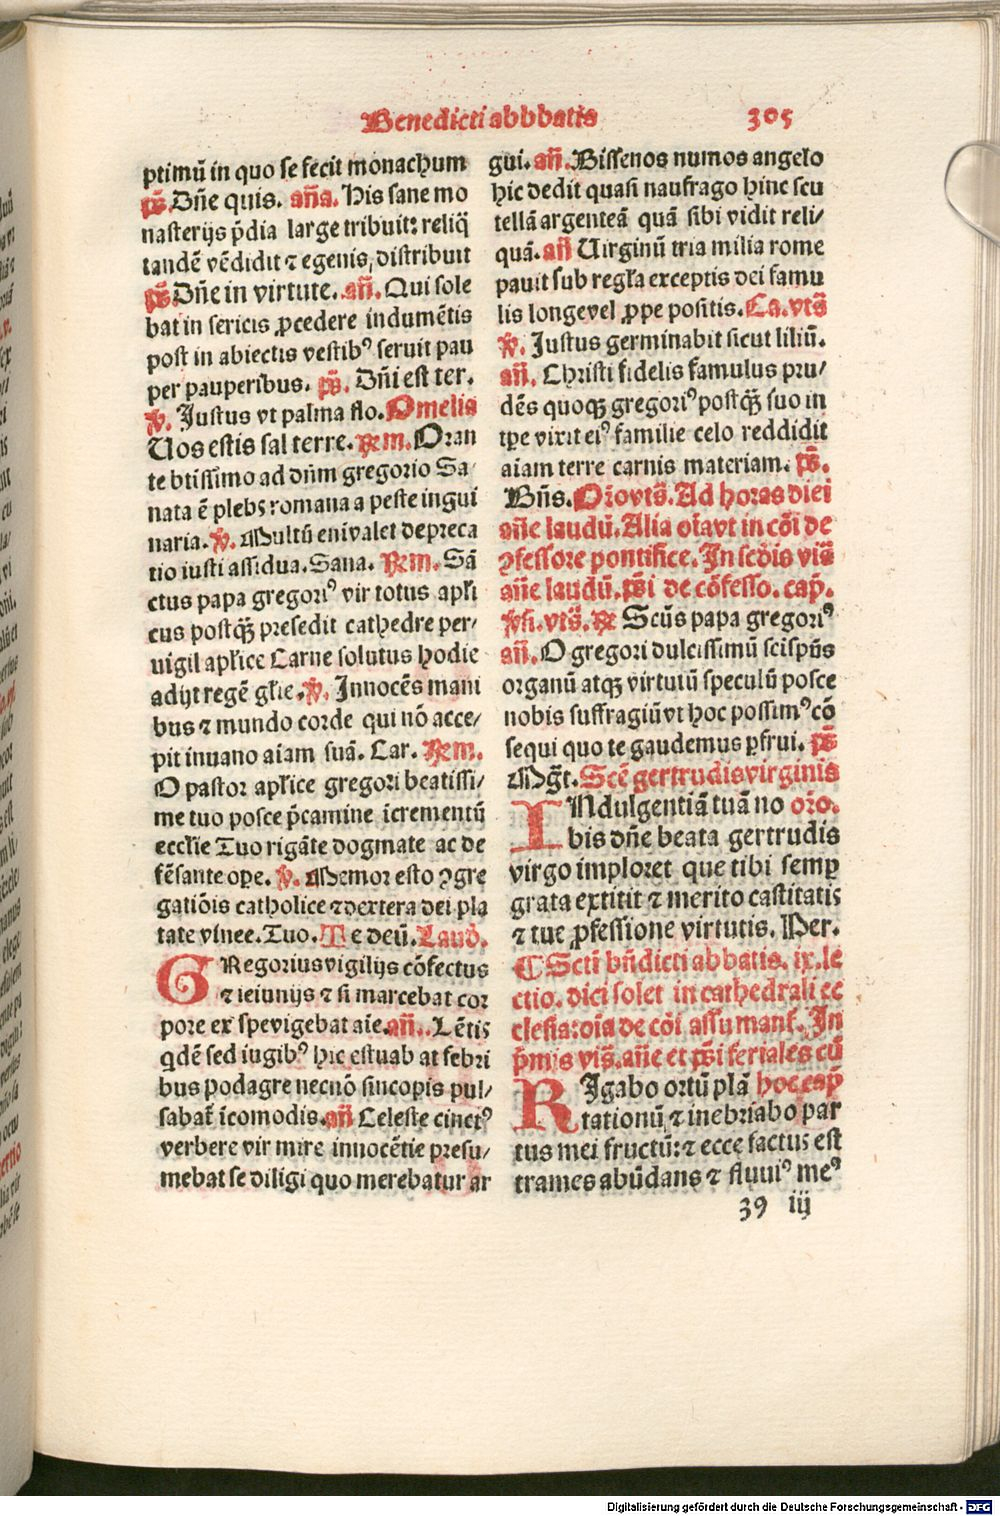 Benedicti abbbatis 305
ptimū in quo se fecit monachum
p̄s. Dn̄e quis. an̄a. His sane mo
nasterijs p̄dia large tribuit: reliq̄
tandē vēdidit ⁊ egenis, distribuit
p̄s. Dn̄e in virtute. an̄. Qui sole
bat in sericis ꝓcedere indumētis
post in abiectis vestibꝰ seruit pau
per pauperibus. p̄s. Dn̄i est ter.
℣. Justus vt palma flo. Omelia
Uos estis sal terre. Rm̄. Oran
te btissimo ad dn̄m gregorio Sa-
nata ē plebs romana a peste ingui
naria. ℣. Multū enī valet depreca
tio iusti assidua. Sana. Rm̄. Sā
ctus papa gregoriꝰ vir totus apl̄i
cus postqꝫ presedit cathedre per/
uigil apl̄ice Carne solutus hodie
adijt regē gl̄ie. ℣. Innocēs mani
bus ⁊ mundo corde qui nō acce/
pit inuano aīam suā. Car. Rm̄.
O pastor apl̄ice gregori beatissi/
me tuo posce p̄camine īcrementū
eccl̄ie Tuo rigāte dogmate ac de
fēsante oꝑe. ℣. Memor esto ꝯgre
gatiōis catholice ⁊ dextera dei pla
tate vīnee. Tuo. Te deū. Laud̄.
GRegorius vigilijs cōfectus
⁊ ieiunijs ⁊ si marcebat cor
pore ex spe vigebat aīe. an̄. Lētis
qdē sed iugibꝰ hic estuab at febri
bus podagre necnō sincopis pul/
sabat̄ īcomodis. an̄ Celeste cinctꝰ
verbere vir mire innocētie presu/
mebat se diligi quo merebatur ar
gui. an̄. Bissenos numos angelo
hic dedit quasi naufrago hinc scu
tellā argenteā quā sibi vidit reli/
quā. an̄ Uirginū tria milia rome
pauit sub regl̄a exceptis dei famu
lis longe vel ꝓpe positis. Ca. vts̄
℣. Justus germinabit sicut liliū.
an̄. Christi fidelis famulus pru/
dēs quoqꝫ gregoriꝰ postqꝫ̄ suo in
tꝑe vixit eiꝰ familie celo reddidit
aīam terre carnis materiam. p̄s.
Bn̄s. Or̄o vts̄. Ad horas diei
an̄e laudū. Alia or̄ aut in cōi de
ꝯfessore pontifice. In scd̄is vis̄
an̄e laudū. ps̄i de cōfesso. cap̄.
℣s̄i. vts̄. R̄ Scūs papa gregoriꝰ
an̄. O gregori dulcissimū sci sp̄ūs
organū atqꝫ virtutū speculū posce
nobis suffragiū vt hoc possimꝰ cō
sequi quo te gaudemus ꝑfrui. p̄s
Mg̃t. Scē gertrudis virginis
INdulgentiā tuā no or̄o.
bis dn̄e beata gertrudis
virgo imploret que tibi semꝑ
grata extitit ⁊ merito castitatis
⁊ tue ꝓfessione virtutis. Per.
¶ Scti bn̄dicti abbatis. ix. le
ctio. dici solet in cathedrali ec
clesia: oīa de cōi assumant̄. In
p̄mis vis̄. an̄e et ps̄i feriales cū
RIgabo ortū plā hoc cap̄
tationū, ⁊ inebriabo par
tus mei fructū: ⁊ ecce factus est
trames abūdans ⁊ fluuiꝰ meꝰ
39 iij
Digitalisierung gefördert durch die Deutsche Forschungsgemeinschaft - DFG